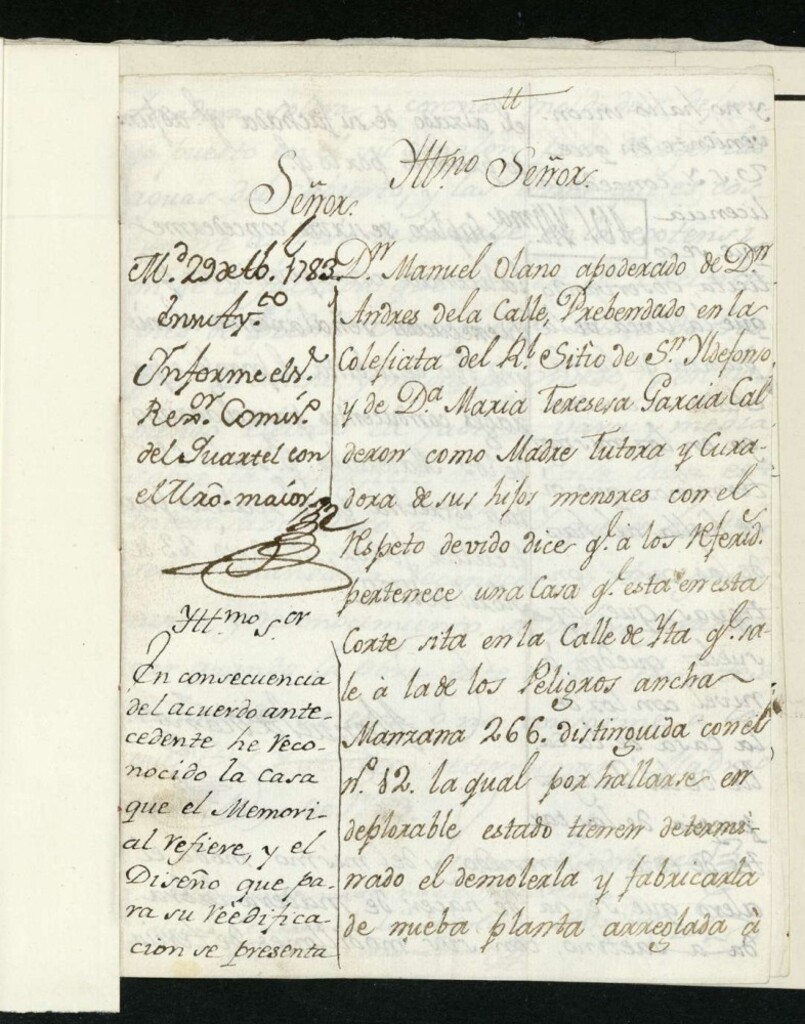 Yttmo Señor.
Señor.
Md. 29 de 1783.
En su Ayto.
Informe el Sr.
Rexor. Comiso.
del Quartel con
el Mro. maior
Yttmo Sor
En consecuencia
del acuerdo ante-
cedente he reco-
nocido la casa
que el Memori-
al refiere, y el
Diseño que pa-
ra su reedifica-
cion se presenta
Dn. Manuel Olano apoderado de Dn.
Andres dela Calle, Prebendado en la
Colesiata del Rl. Sitio de Sn. Yldefonso,
y de Da. Maria Teresesa Garcia Cal
deron como Madre Tutora y Cura-
dora de sus hijos menores con el
respeto devido dice qe. à los referid.
pertenece una Casa qe. esta en esta
Corte sita en la Calle de Yta qe. sa-
le à la de los Peligros ancha
Manzana 266. distinguida con el
n.º 12. la qual por hallarse en
deplorable estado tienen determi-
nado el demolerla y fabricarla
de nueba planta arreglada à